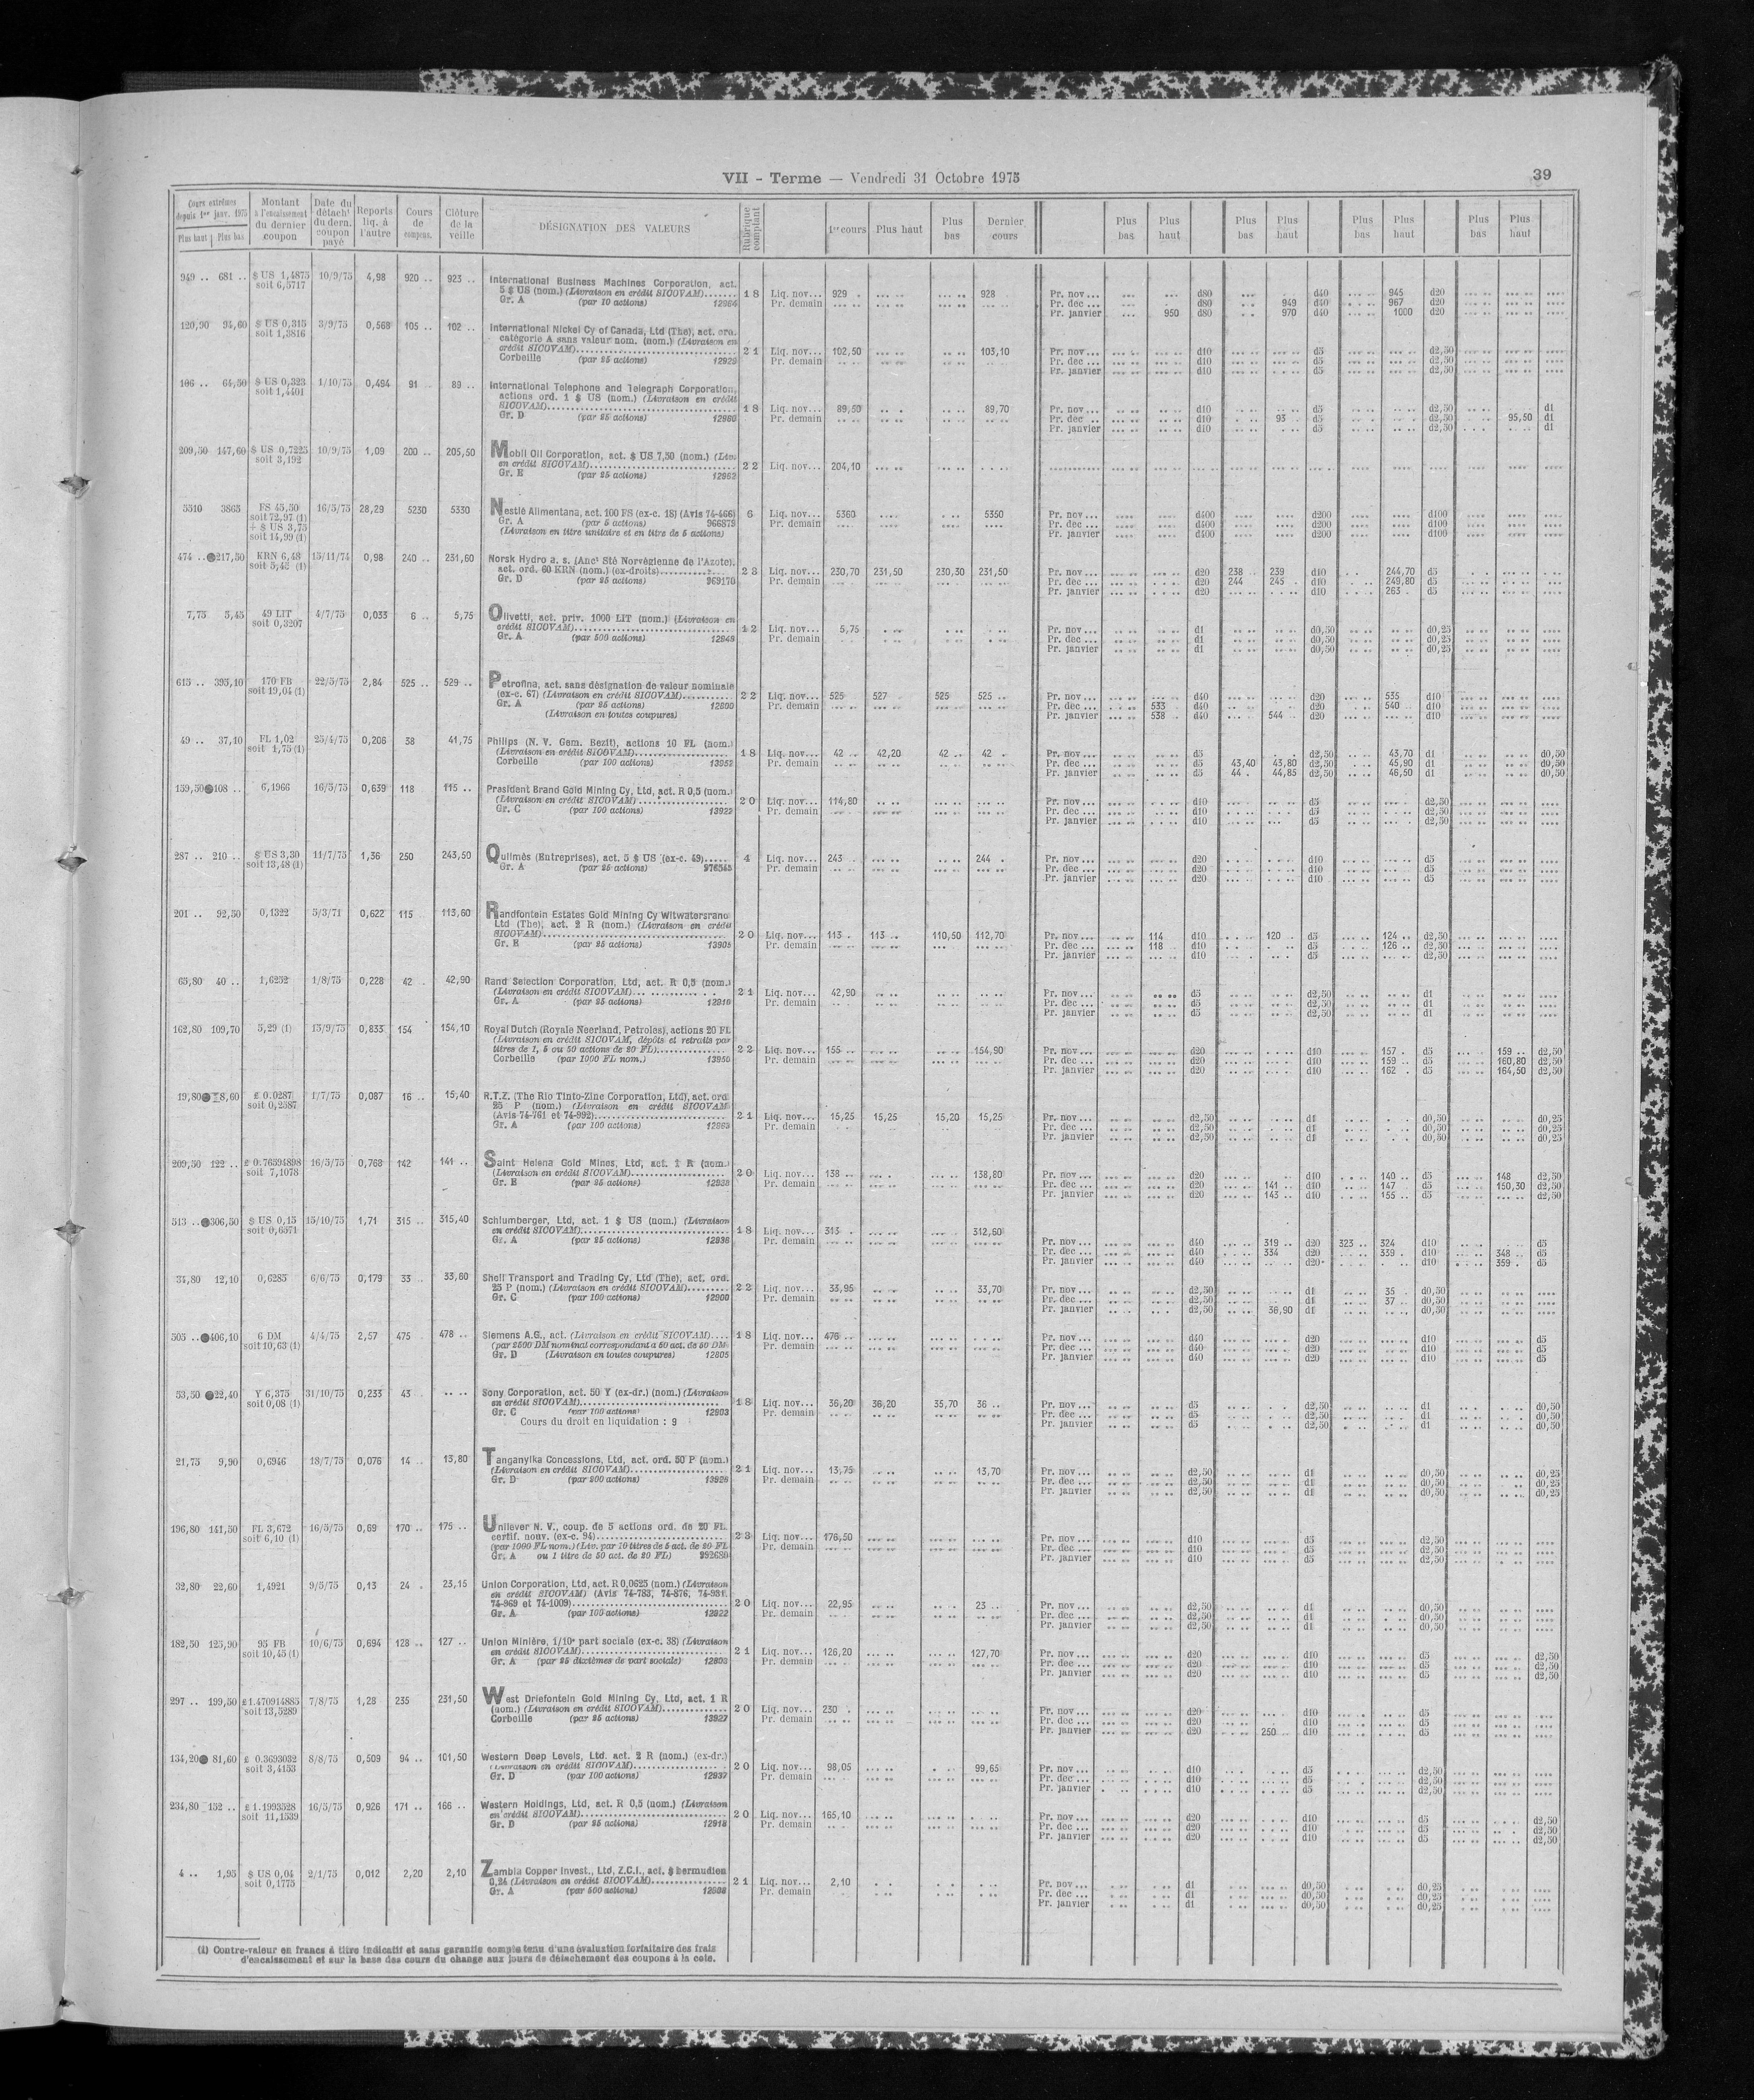 VII - Terme — Vendredi 31 Octobre 1975
39
Cours extrêmes depuis 1er janv. 1975 Plus haut Plus bas
Montant à l'encaissement du dernier coupon
Date du détacht du dern. coupon payé
Reports liq. à l'autre
Cours de compens.
Clôture de la veille
DÉSIGNATION DES VALEURS
Rubrique comptant
1er cours Plus haut Plus bas Dernier cours
Plus bas Plus haut Plus bas Plus haut Plus bas Plus haut Plus bas Plus haut
949 .. 681 .. $ US 1,4875 10/9/75 4,98 920 .. 923 ..
soit 6,5717
International Business Machines Corporation, act.
5 $ US (nom.) (Livraison en crédit SICOVAM)....... 18 Liq. nov... 929 . 928 Pr. nov... d80 d40 945 d20
Gr. A (par 10 actions) 12964 Pr. demain Pr. dec... d80 949 d40 967 d20
Pr. janvier 950 d80 970 d40 1000 d20
120,90 94,60 $ US 0,315 3/9/75 0,568 105 .. 102 ..
soit 1,3816
International Nickel Cy of Canada, Ltd (The), act. ord.
catégorie A sans valeur nom. (nom.) (Livraison en
crédit SICOVAM) 21 Liq. nov... 102,50 103,10 Pr. nov... d10 d5 d2,50
Corbeille (par 25 actions) 12929 Pr. demain Pr. dec... d10 d5 d2,50
Pr. janvier d10 d5 d2,50
106 .. 64,50 $ US 0,323 1/10/75 0,494 91 .. 89 ..
soit 1,4401
International Telephone and Telegraph Corporation,
actions ord. 1 $ US (nom.) (Livraison en crédit
SICOVAM) 18 Liq. nov... 89,50 89,70 Pr. nov... d10 d5 d2,50 d1
Gr. D (par 25 actions) 12980 Pr. demain Pr. dec .. d10 93 d5 d2,50 95,50 d1
Pr. janvier d10 d5 d2,50 d1
209,50 147,60 $ US 0,7225 10/9/75 1,09 200 .. 205,50
soit 3,192
Mobil Oil Corporation, act. $ US 7,50 (nom.) (Liv.
en crédit SICOVAM) 22 Liq. nov... 204,10
Gr. E (par 25 actions) 12962
5510 3865 FS 45,50 16/5/75 28,29 5230 5330
soit 72,97 (1)
+ $ US 3,75
soit 14,99 (1)
Nestlé Alimentana, act. 100 FS (ex-c. 18) (Avis 74-466) 6 Liq. nov... 5360 5350 Pr. nov... d400 d200 d100
Gr. A (par 5 actions) 966879 Pr. demain Pr. dec... d400 d200 d100
(Livraison en titre unitaire et en titre de 5 actions) Pr. janvier d400 d200 d100
474 .. ●217,50 KRN 6,48 15/11/74 0,98 240 .. 231,60
soit 5,45 (1)
Norsk Hydro a. s. (Anct Sté Norvégienne de l'Azote),
act. ord. 60 KRN (nom.) (ex-droits) 23 Liq. nov... 230,70 231,50 230,30 231,50 Pr. nov... d20 238 239 d10 244,70 d5
Gr. D (par 25 actions) 969170 Pr. demain Pr. dec... d20 244 245 d10 249,80 d5
Pr. janvier d20 d10 263 d5
7,75 5,45 49 LIT 4/7/75 0,033 6 .. 5,75
soit 0,3207
Olivetti, act. priv. 1000 LIT (nom.) (Livraison en
crédit SICOVAM) 12 Liq. nov... 5,75 Pr. nov... d1 d0,50 d0,25
Gr. A (par 500 actions) 12949 Pr. demain Pr. dec... d1 d0,50 d0,25
Pr. janvier d1 d0,50 d0,25
615 .. 395,10 170 FB 22/5/75 2,84 525 .. 529 ..
soit 19,04 (1)
Petrofina, act. sans désignation de valeur nominale
(ex-c. 67) (Livraison en crédit SICOVAM) 22 Liq. nov... 525 527 525 525 .. Pr. nov... d40 d20 535 d10
Gr. A (par 25 actions) 12800 Pr. demain Pr. dec... 533 d40 d20 540 d10
(Livraison en toutes coupures) Pr. janvier 538 d40 544 d20 d10
49 .. 37,10 FL 1,02 25/4/75 0,206 38 41,75
soit 1,75 (1)
Philips (N. V. Gem. Bezit), actions 10 FL (nom.)
(Livraison en crédit SICOVAM) 18 Liq. nov... 42 .. 42,20 42 .. 42 . Pr. nov... d5 d2,50 43,70 d1 d0,50
Corbeille (par 100 actions) 13952 Pr. demain Pr. dec... d5 43,40 43,80 d2,50 45,90 d1 d0,50
Pr. janvier d5 44 . 44,85 d2,50 46,50 d1 d0,50
159,50 ●108 .. 6,1966 16/5/75 0,639 118 115 ..
President Brand Gold Mining Cy, Ltd, act. R 0,5 (nom.)
(Livraison en crédit SICOVAM) 20 Liq. nov... 114,80 Pr. nov... d10 d5 d2,50
Gr. C (par 100 actions) 13922 Pr. demain Pr. dec... d10 d5 d2,50
Pr. janvier d10 d5 d2,50
287 .. 210 .. $ US 3,30 11/7/75 1,36 250 243,50
soit 13,48 (1)
Quilmès (Entreprises), act. 5 $ US (ex-c. 49)..... 4 Liq. nov... 243 244 . Pr. nov... d20 d10 d5
Gr. A (par 25 actions) 976545 Pr. demain Pr. dec... d20 d10 d5
Pr. janvier d20 d10 d5
201 .. 92,50 0,1322 5/3/71 0,622 115 113,60
Randfontein Estates Gold Mining Cy Witwatersrand
Ltd (The), act. 2 R (nom.) (Livraison en crédit
SICOVAM) 20 Liq. nov... 113 . 113 .. 110,50 112,70 Pr. nov... 114 d10 120 d5 124 .. d2,50
Gr. E (par 25 actions) 13905 Pr. demain Pr. dec... 118 d10 d5 126 .. d2,50
Pr. janvier d10 d5 d2,50
65,80 40 .. 1,6252 1/8/75 0,228 42 . 42,90
Rand Selection Corporation, Ltd, act. R 0,5 (nom.)
(Livraison en crédit SICOVAM) 21 Liq. nov... 42,90 Pr. nov... d5 d2,50 d1
Gr. A (par 25 actions) 12919 Pr. demain Pr. dec... d5 d2,50 d1
Pr. janvier d5 d2,50 d1
162,80 109,70 5,29 (1) 15/9/75 0,833 154 154,10
Royal Dutch (Royale Neerland, Petroles), actions 20 FL
(Livraison en crédit SICOVAM, dépôts et retraits par
titres de 1, 5 ou 50 actions de 20 FL) 22 Liq. nov... 155 .. 154,90 Pr. nov... d20 d10 157 . d5 159 .. d2,50
Corbeille (par 1000 FL nom.) 13950 Pr. demain Pr. dec... d20 d10 159 .. d5 160,80 d2,50
Pr. janvier d20 d10 162 . d5 164,50 d2,50
19,80 8,60 £ 0.0287 1/7/75 0,087 16 .. 15,40
soit 0,2587
R.T.Z. (The Rio Tinto-Zinc Corporation, Ltd), act. ord.
25 P (nom.) (Livraison en crédit SICOVAM
(Avis 74-761 et 74-992) 21 Liq. nov... 15,25 15,25 15,20 15,25 Pr. nov... d2,50 d1 d0,50 d0,25
Gr. A (par 100 actions) 12863 Pr. demain Pr. dec... d2,50 d1 d0,50 d0,25
Pr. janvier d2,50 d1 d0,50 d0,25
209,50 122 .. £ 0.76594898 16/5/75 0,768 142 141 ..
soit 7,1078
Saint Helena Gold Mines, Ltd, act. 1 R (nom.)
(Livraison en crédit SICOVAM) 20 Liq. nov... 138 .. 138,80 Pr. nov... d20 d10 140 .. d5 148 d2,50
Gr. E (par 25 actions) 12938 Pr. demain Pr. dec... d20 141 .. d10 147 d5 150,30 d2,50
Pr. janvier d20 143 .. d10 155 .. d5 d2,50
513 .. ●306,50 $ US 0,15 15/10/75 1,71 315 .. 315,40
soit 0,6571
Schlumberger, Ltd, act. 1 $ US (nom.) (Livraison
en crédit SICOVAM) 18 Liq. nov... 313 . 312,60 Pr. nov... d40 319 .. d20 323 .. 324 d10 d5
Gr. A (par 25 actions) 12936 Pr. demain Pr. dec... d40 334 d20 339 . d10 348 .. d5
Pr. janvier d40 d20 d10 359 . d5
34,80 12,10 0,6285 6/6/75 0,179 33 .. 33,60
Shell Transport and Trading Cy, Ltd (The), act. ord.
25 P (nom.) (Livraison en crédit SICOVAM) 22 Liq. nov... 33,95 33,70 Pr. nov... d2,50 d1 35 . d0,50
Gr. C (par 100 actions) 12900 Pr. demain Pr. dec... d2,50 d1 37 .. d0,50
Pr. janvier d2,50 36,90 d1 d0,50
505 .. ●406,10 6 DM 4/4/75 2,57 475 . 478 ..
soit 10,63 (1)
Siemens A.G., act. (Livraison en crédit SICOVAM).... 18 Liq. nov... 476 .. Pr. nov... d40 d20 d10 d5
(par 2500 DM nominal correspondant à 50 act. de 50 DM Pr. demain Pr. dec... d40 d20 d10 d5
Gr. D (Livraison en toutes coupures) 12805 Pr. janvier d40 d20 d10 d5
53,50 ●22,40 Y 6,375 31/10/75 0,233 43 . .. ..
soit 0,08 (1)
Sony Corporation, act. 50 Y (ex-dr.) (nom.) (Livraison
en crédit SICOVAM) 18 Liq. nov... 36,20 36,20 35,70 36 .. Pr. nov... d5 d2,50 d1 d0,50
Gr. C (par 100 actions) 12903 Pr. demain Pr. dec... d5 d2,50 d1 d0,50
Cours du droit en liquidation : 9 Pr. janvier d5 d2,50 d1 d0,50
21,75 9,90 0,6946 18/7/75 0,076 14 .. 13,80
Tanganyika Concessions, Ltd, act. ord. 50 P (nom.)
(Livraison en crédit SICOVAM) 21 Liq. nov... 13,75 13,70 Pr. nov... d2,50 d1 d0,50 d0,25
Gr. D (par 200 actions) 13928 Pr. demain Pr. dec... d2,50 d1 d0,50 d0,25
Pr. janvier d2,50 d1 d0,50 d0,25
196,80 141,50 FL 3,672 16/5/75 0,69 170 .. 175 ..
soit 6,10 (1)
Unilever N. V., coup. de 5 actions ord. de 20 FL.
certif. nouv. (ex-c. 94) 23 Liq. nov... 176,50 Pr. nov... d10 d5 d2,50
(par 1000 FL nom.) (Liv. par 10 titres de 5 act. de 20 FL Pr. demain Pr. dec... d10 d5 d2,50
Gr. A ou 1 titre de 50 act. de 20 FL) 992680 Pr. janvier d10 d5 d2,50
32,80 22,60 1,4921 9/5/75 0,13 24 . 23,15
Union Corporation, Ltd, act. R 0,0625 (nom.) (Livraison
en crédit SICOVAM) (Avis 74-783, 74-876, 74-931,
74-969 et 74-1009) 20 Liq. nov... 22,95 23 .. Pr. nov... d2,50 d1 d0,50
Gr. A (par 100 actions) 12922 Pr. demain Pr. dec... d2,50 d1 d0,50
Pr. janvier d2,50 d1 d0,50
182,50 125,90 95 FB 10/6/75 0,694 128 .. 127 ..
soit 10,45 (1)
Union Minière, 1/10e part sociale (ex-c. 38) (Livraison
en crédit SICOVAM) 21 Liq. nov... 126,20 127,70 Pr. nov... d20 d10 d5 d2,50
Gr. A (par 25 dixièmes de part sociale) 12803 Pr. demain Pr. dec... d20 d10 d5 d2,50
Pr. janvier d20 d10 d5 d2,50
297 .. 199,50 £1.470914885 7/8/75 1,28 235 231,50
soit 13,5289
West Driefontein Gold Mining Cy, Ltd, act. 1 R
(nom.) (Livraison en crédit SICOVAM) 20 Liq. nov... 230 . Pr. nov... d20 d10 d5
Corbeille (par 25 actions) 13927 Pr. demain Pr. dec... d20 d10 d5
Pr. janvier d20 250 .. d10 d5
134,20 ● 81,60 £ 0.3693032 8/8/75 0,509 94 .. 101,50
soit 3,4153
Western Deep Levels, Ltd. act. 2 R (nom.) (ex-dr.)
(Livraison en crédit SICOVAM) 20 Liq. nov... 98,05 99,65 Pr. nov... d10 d5 d2,50
Gr. D (par 100 actions) 12937 Pr. demain Pr. dec... d10 d5 d2,50
Pr. janvier d10 d5 d2,50
234,80 152 .. £ 1.1993528 16/5/75 0,926 171 .. 166 ..
soit 11,1539
Western Holdings, Ltd, act. R 0,5 (nom.) (Livraison
en crédit SICOVAM) 20 Liq. nov... 165,10 Pr. nov... d20 d10 d5 d2,50
Gr. D (par 25 actions) 12918 Pr. demain Pr. dec... d20 d10 d5 d2,50
Pr. janvier d20 d10 d5 d2,50
4 .. 1,95 $ US 0,04 2/1/75 0,012 2,20 2,10
soit 0,1775
Zambia Copper Invest., Ltd, Z.C.I., act. $ bermudien
0,24 (Livraison en crédit SICOVAM) 21 Liq. nov... 2,10 Pr. nov... d1 d0,50 d0,25
Gr. A (par 500 actions) 12508 Pr. demain Pr. dec... d1 d0,50 d0,25
Pr. janvier d1 d0,50 d0,25
(1) Contre-valeur en francs à titre indicatif et sans garantie compte tenu d'une évaluation forfaitaire des frais
d'encaissement et sur la base des cours du change aux jours de détachement des coupons à la cote.